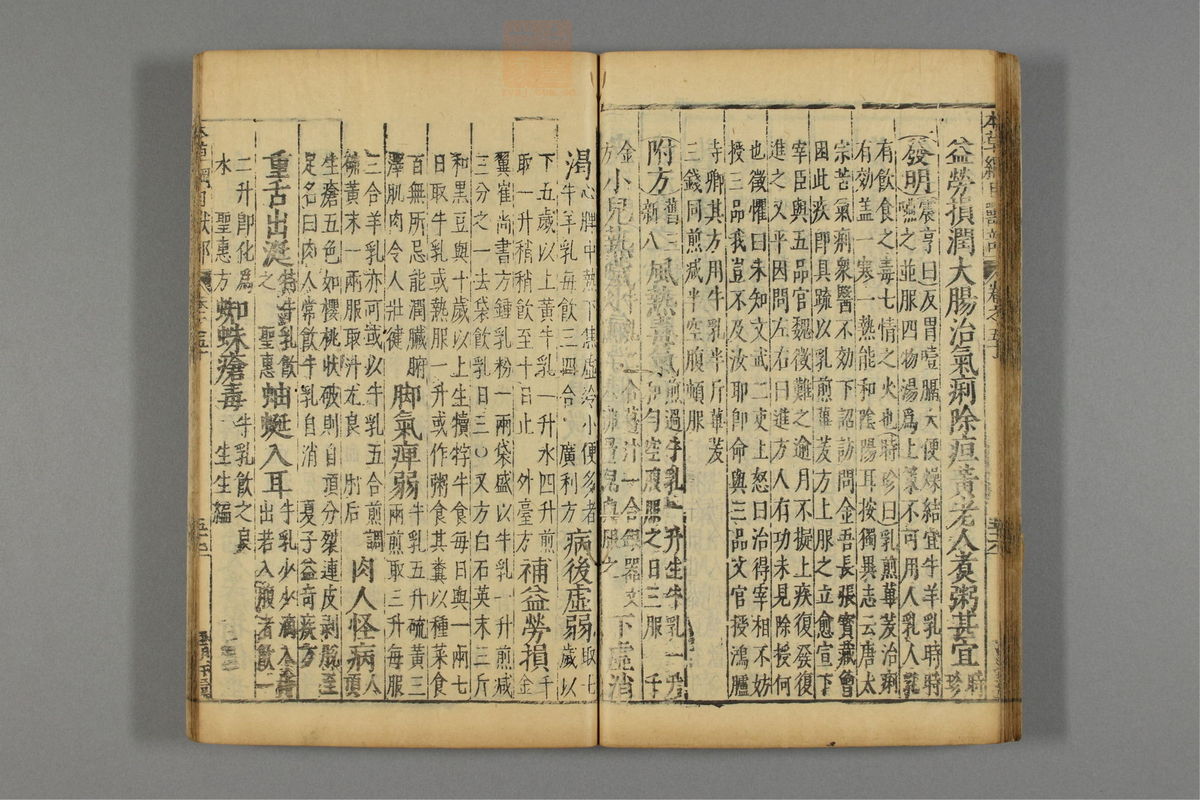 益勞損潤大腸治氣痢除疸黃老人煮粥甚宜時珍
發明震亨曰反胃噎膈大便燥結宜牛羊乳時時
嚥之並服四物湯爲上策不可用人乳人乳
有飲食之毒七情之火也時珍曰乳煎蓽茇治痢
有効蓋一寒一熱能和陰陽耳按獨異志云唐太
宗苦氣痢衆醫不効下詔訪問金吾長張寶藏曾
困此疾即具疏以乳煎蓽茇方上服之立愈宣下
宰臣與五品官魏徵難之逾月不擬上疾復發復
進之又平因問左右曰進方人有功未見除授何
也徵懼曰未知文武二吏上怒曰治得宰相不妨
授三品我豈不及汝耶即命與三品文官授鴻臚
寺卿其方用牛乳半斤蓽茇
三錢同煎減半空腹頓服
附方舊三新八風熱毒氣煎過牛乳一升生牛乳一升
和勻空腹服之日三服 千
金方小兒熱噦牛乳二合薑汁一合銀器文
下虛消
渴心脾中熱下焦虛冷小便多者
牛羊乳每飲三四合 廣利方病後虛弱取七歲以
下五歲以上黃牛乳一升水四升煎
取一升稍稍飲至十日止 外臺方補益勞損千金
翼崔尚書方鍾乳粉一兩袋盛以牛乳一升煎減
三分之一去袋飲乳日三〇又方白石英末三斤
和黑豆與十歲以上生犢牸牛食每日與一兩七
日取牛乳或熱服一升或作粥食其糞以種菜食
百無所忌能潤臟腑
澤肌肉令人壯健脚氣痺弱牛乳五升硫黃三
兩煎取三升每服
三合羊乳亦可或以牛乳五合煎調
硫黃末一兩服取汁尤良 肘后肉人怪病人頂
生瘡五色如櫻桃狀破則自頂分裂連皮剥脫至
足名曰肉人常飲牛乳自消 夏子益奇疾方
重舌出涎特牛乳飲
之 聖惠蚰蜒入耳牛乳少少滴入
出若入腹者飲一
二升即化爲
水 聖惠方蜘蛛瘡毒牛乳飲之良
生生編